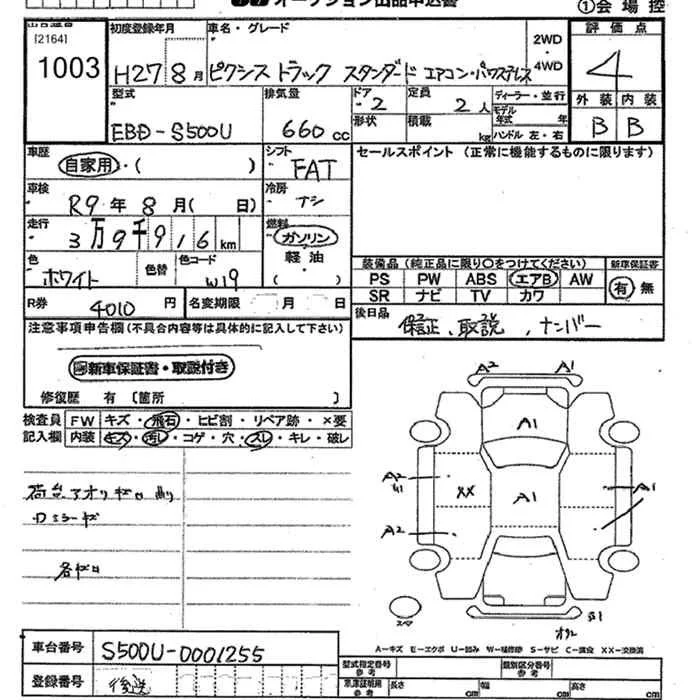 ①会場控
[2164]
1003
初度登録年月
H27 8月
車名・グレード
ピクシス トラック スタンダード エアコン・パワステレス
2WD
4WD
評価点
4
外装 内装
B B
型式
EBD-S500U
排気量
660 cc
ドア
2
定員
2人
形状
積載
kg
ディーラー・並行
モデル年式 年
ハンドル 左・右
車歴
自家用・( )
シフト
FAT
セールスポイント (正常に機能するものに限ります)
車検
R9年 8月( 日)
冷房
ナシ
走行
3万9千916km
燃料
ガソリン
軽油
( )
色
ホワイト
色替
色コード
W19
装備品 (純正品に限り○をつけてください)
PS PW ABS エアB AW
SR ナビ TV カワ
新車保証書
有 無
R券
4010円
名変期限 月 日
後日品
保証、取説、ナンバー
注意事項申告欄(不具合内容等は具体的に記入して下さい)
新車保証書・取説付き
修復歴 有 〔箇所 〕
検査員 FW キズ・飛石・ヒビ割・リペア跡・×要
記入欄 内装 キズ・汚レ・コゲ・穴・スレ・キレ・破レ
A2 A1
A1
A2
XX
A1
A1
A2
A-キズ E-エクボ U-凹み W-補修跡 S-サビ C-腐食 XX-交換済
車台番号
S500U-0001255
登録番号
後送
型式指定番号
参考
類別区分番号
参考
車庫証明用
参考
長さ cm
幅 cm
高さ cm